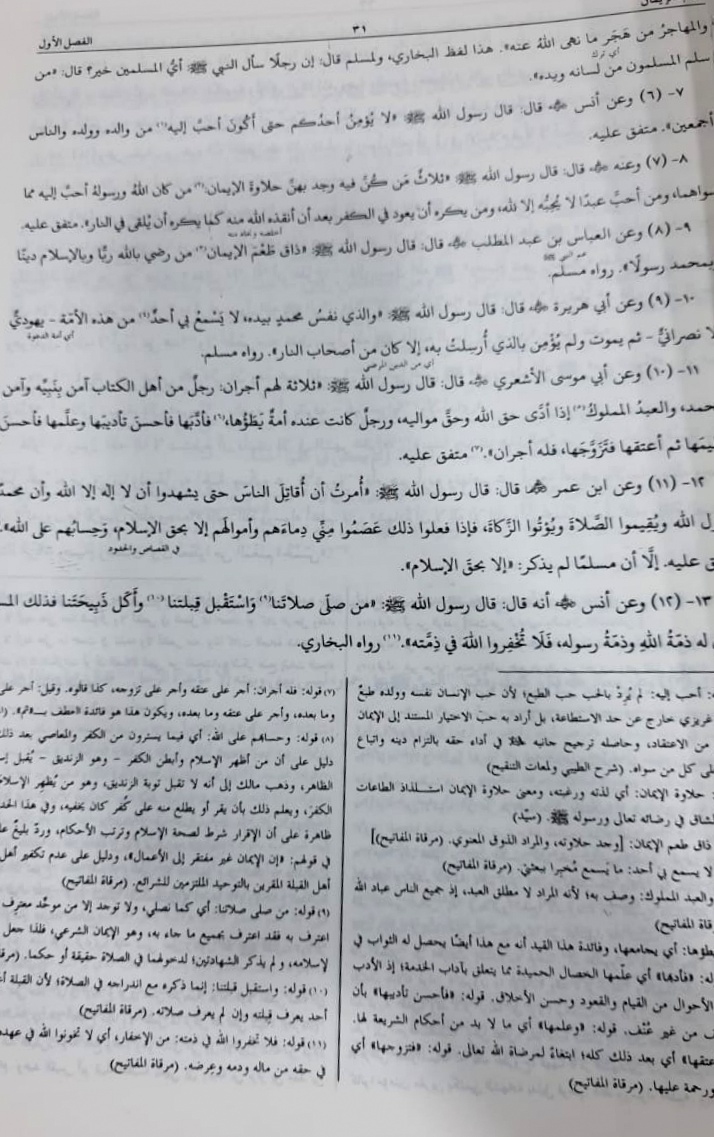 ٣١
الفصل الأول
والمهاجرُ من هَجَر ما نهى اللهُ عنه». هذا لفظ البخاري، ولمسلم قال: إن رجلًا سأل النبي ﷺ: أيُّ المسلمين خير؟ قال: «من
أي ترك
سلم المسلمون من لسانه ويده».
٧- (٦) وعن أنس ﷺ قال: قال رسول الله ﷺ «لا يُؤمِنُ أحدُكم حتى أَكُونَ أحبَّ إليه(١) من والده وولده والناس
أجمعين». متفق عليه.
٨- (٧) وعنه قال: قال رسول الله ﷺ: «ثلاثٌ مَن كُنَّ فيه وجد بهنَّ حلاوةَ الإيمان:(٢) من كان اللهُ ورسولهُ أحبَّ إليه مما
سواهما، ومن أحبَّ عبدًا لا يُحِبُّه إلا لله، ومن يكره أن يعود في الكفر بعد أن أنقذه الله منه كما يكره أن يُلقى في النار». متفق عليه.
٩- (٨) وعن العباس بن عبد المطلب قال: قال رسول الله ﷺ: «ذاق طَعْمَ الإيمان(٣) من رضي بالله ربًّا وبالإسلام دينًا
بمحمد رسولًا». رواه مسلم.
١٠- (٩) وعن أبي هريرة قال: قال رسول الله ﷺ: «والذي نفسُ محمدٍ بيده، لا يَسْمعُ بي أحدٌ(٤) من هذه الأمّة - يهوديٌّ
أي أمة الدعوة
لا نصرانيٌّ - ثم يموت ولم يُؤْمِن بالذي أُرسِلتُ به، إلا كان من أصحاب النار». رواه مسلم.
أي من الدين المرضي
١١- (١٠) وعن أبي موسى الأشعري قال: قال رسول الله ﷺ: «ثلاثة لهم أجران: رجلٌ من أهل الكتاب آمن بِنَبِيِّه وآمن
حمد، والعبدُ المملوكُ(٥) إذا أدَّى حق الله وحقَّ مواليه، ورجلٌ كانت عنده أمةٌ يَطَؤُها،(٦) فأدَّبَها فأحسنَ تأديبَها وعلَّمها فأحسنَ
يمَها ثم أعتقها فتَزَوَّجَها، فله أجران».(٧) متفق عليه.
١٢- (١١) وعن ابن عمر قال: قال رسول الله ﷺ: «أُمرتُ أن أُقاتِلَ الناسَ حتى يشهدوا أن لا إله إلا الله وأن محمدً
ل الله ويُقِيموا الصَّلاةَ ويُؤتُوا الزَّكاةَ، فإذا فعلوا ذلك عَصَمُوا مِنِّي دِماءَهم وأموالَهم إلا بحق الإسلام، وَحِسابُهم على الله».
في القصاص والحدود
ق عليه. إلَّا أن مسلمًا لم يذكر: «إلا بحقِ الإسلام».
١٣- (١٢) وعن أنس أنه قال: قال رسول الله ﷺ: «من صلَّى صلاتَنا(٩) وَاسْتَقْبل قِبلتنا(١٠) وأَكَل ذَبِيحَتَنا فذلك المس
له ذمّةُ اللهِ وذمّةُ رسوله، فَلَا تُخْفِروا اللهَ في ذِمَّته».(١١) رواه البخاري.
: أحب إليه: لم يُرِدْ بالحب حب الطبع؛ لأن حب الإنسان نفسه وولده طبعٌ
غريزي خارج عن حد الاستطاعة، بل أراد به حبَّ الاختيار المستند إلى الإيمان
من الاعتقاد، وحاصله ترجيح جانبه في أداء حقه بالتزام دينه واتباع
على كل من سواه. (شرح الطيبي ولمعات التنقيح)
: حلاوة الإيمان: أي لذته ورغبته، ومعنى حلاوة الإيمان استلذاذ الطاعات
لشاق في رضائه تعالى ورسوله ﷺ. (سيِّد)
ذاق طعم الإيمان: [وجد حلاوته، والمراد الذوق المعنوي. (مرقاة المفاتيح)]
لا يسمع بي أحد: ما يَسمع مُخبرا ببعثتي. (مرقاة المفاتيح)
والعبد المملوك: وصف به؛ لأنه المراد لا مطلق العبد، إذ جميع الناس عباد الله
رقاة المفاتيح)
طؤها: أي يجامعها، وفائدة هذا القيد أنه مع هذا أيضًا يحصل له الثواب في
له: «فأدبها» أي علّمها الخصال الحميدة مما يتعلق بآداب الخدمة؛ إذ الأدب
الأحوال من القيام والقعود وحسن الأخلاق. قوله: «فأحسن تأديبها» بأن
ف من غير عُنْف. قوله: «وعلمها» أي ما لا بد من أحكام الشريعة لها.
عتقها» أي بعد ذلك كله؛ ابتغاءً لمرضاة الله تعالى. قوله: «فتزوجها» أي
ورحمة عليها. (مرقاة المفاتيح)
(٧) قوله: فله أجران: أجر على عتقه وأجر على تزوجه، كذا قالوه. وقيل: أجر على
وما بعده، وأجر على عتقه وما بعده، ويكون هذا هو فائدة العطف بـ«ثم».
(٨) قوله: وحسابهم على الله: أي فيما يسترون من الكفر والمعاصي بعد ذلك
دليل على أن من أظهر الإسلام وأبطن الكفر - وهو الزنديق - يُقبل إس
الظاهر، وذهب مالك إلى أنه لا تقبل توبة الزنديق، وهو من يُظهر الإسلام
الكفرَ، ويعلم ذلك بأن يقر أو يطلع منه على كُفر كان يخفيه، وفي هذا الحد
ظاهرة على أن الإقرار شرط لصحة الإسلام وترتب الأحكام، وردّ بليغٌ عل
في قولهم: «إن الإيمان غير مفتقر إلى الأعمال»، ودليل على عدم تكفير أهل
أهل القبلة المقرين بالتوحيد الملتزمين للشرائع. (مرقاة المفاتيح)
(٩) قوله: من صلى صلاتنا: أي كما نصلي، ولا توجد إلا من موحِّد معترف
اعترف به فقد اعترف بجميع ما جاء به، وهو الإيمان الشرعي، فلذا جعل
لإسلامه، ولم يذكر الشهادتين؛ لدخولهما في الصلاة حقيقة أو حكما. (مرقا
(١٠) قوله: واستقبل قبلتنا: إنما ذكره مع اندراجه في الصلاة؛ لأن القبلة أ
أحد يعرف قبلته وإن لم يعرف صلاته. (مرقاة المفاتيح)
(١١) قوله: فلا تخفروا الله في ذمته: من الإخفار، أي لا تخونوا الله في عهده
في حقه من ماله ودمه وعِرضه. (مرقاة المفاتيح)